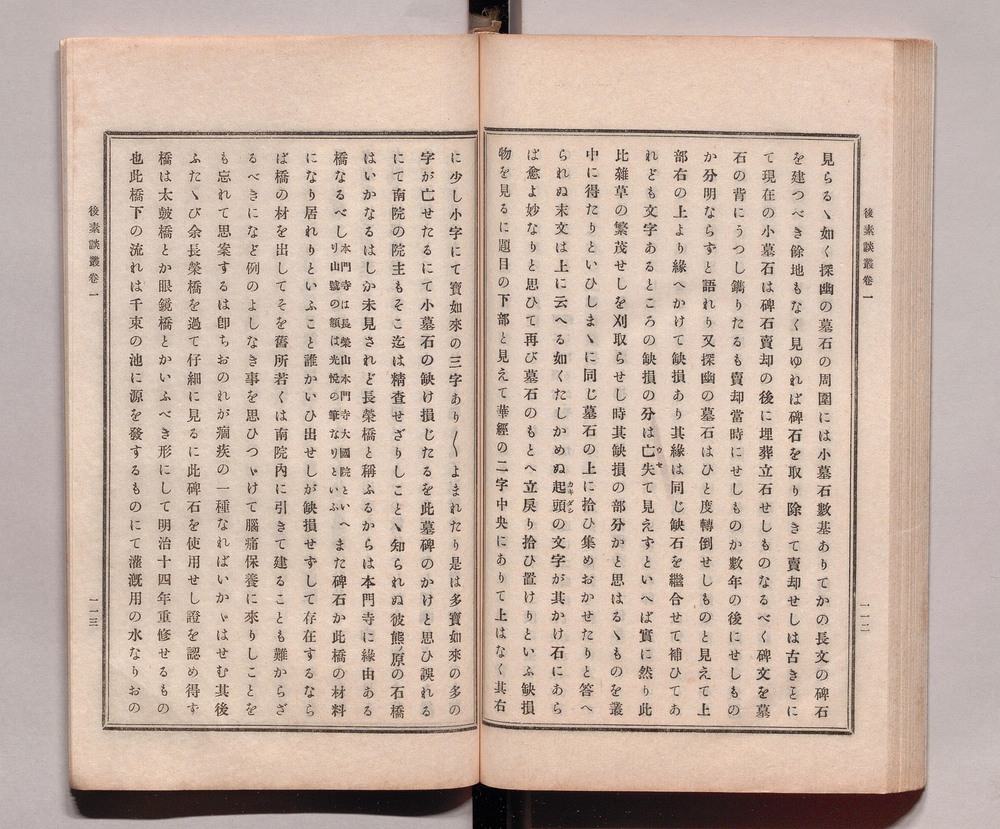 後素談叢卷一
一一二
見らるヽ如く探幽の墓石の周圍には小墓石數基ありてかの長文の碑石
を建つべき餘地もなく見ゆれば碑石を取り除きて賣却せしは古きことに
て現在の小墓石は碑石賣却の後に埋葬立石せしものなるべく碑文を墓
石の背にうつし鐫りたるも賣却當時にせしものか數年の後にせしもの
か分明ならずと語れり又探幽の墓石はひと度轉倒せしものと見えて上
部右の上より緣へかけて缺損あり其緣は同じ缺石を繼合せて補ひてあ
れども文字あるところの缺損の分は亡失て見えすといへば實に然り此
比雜草の繁茂せしを刈取らせし時其缺損の部分かと思はるヽものを叢
中に得たりといひしまヽに同じ墓石の上に拾ひ集めおかせたりと答へ
られぬ末文は上に云へる如くたしかめぬ起頭の文字が其かけ石にあら
ば愈よ妙なりと思ひて再び墓石のもとへ立戾り拾ひ置けりといふ缺損
物を見るに題目の下部と見えて華經の二字中央にありて上はなく其右
に少し小字にて寶如來の三字あり〳〵よまれたり是は多寶如來の多の
字が亡せたるにて小墓石の缺け損じたるを此墓碑のかけと思ひ誤れる
にて南院の院主もそこ迄は精查せざりしことヽ知られぬ彼熊ノ原の石橋
はいかなるはしか未見されど長榮橋と稱ふるからは本門寺に緣由ある
橋なるべし本門寺は長榮山本門寺大國院といへり山號の額は光悅の筆なりといふまた碑石か此橋の材料
になり居れりといふこと誰かいひ出せしが缺損せずして存在するなら
ば橋の材を出してそを舊所若くは南院內に引きて建ることも難からざ
るべきになど例のよしなき事を思ひつゞけて腦痛保養に來りしことを
も忘れて思案するは卽ちおのれが痼疾の一種なればいかゞはせむ其後
ふたヽび余長榮橋を過て仔細に見るに此碑石を使用せし證を認め得す
橋は太皷橋とか眼鏡橋とかいふべき形にして明治十四年重修せるもの
也此橋下の流れは千束の池に源を發するものにて灌漑用の水なりおの
後素談叢卷一
一一三